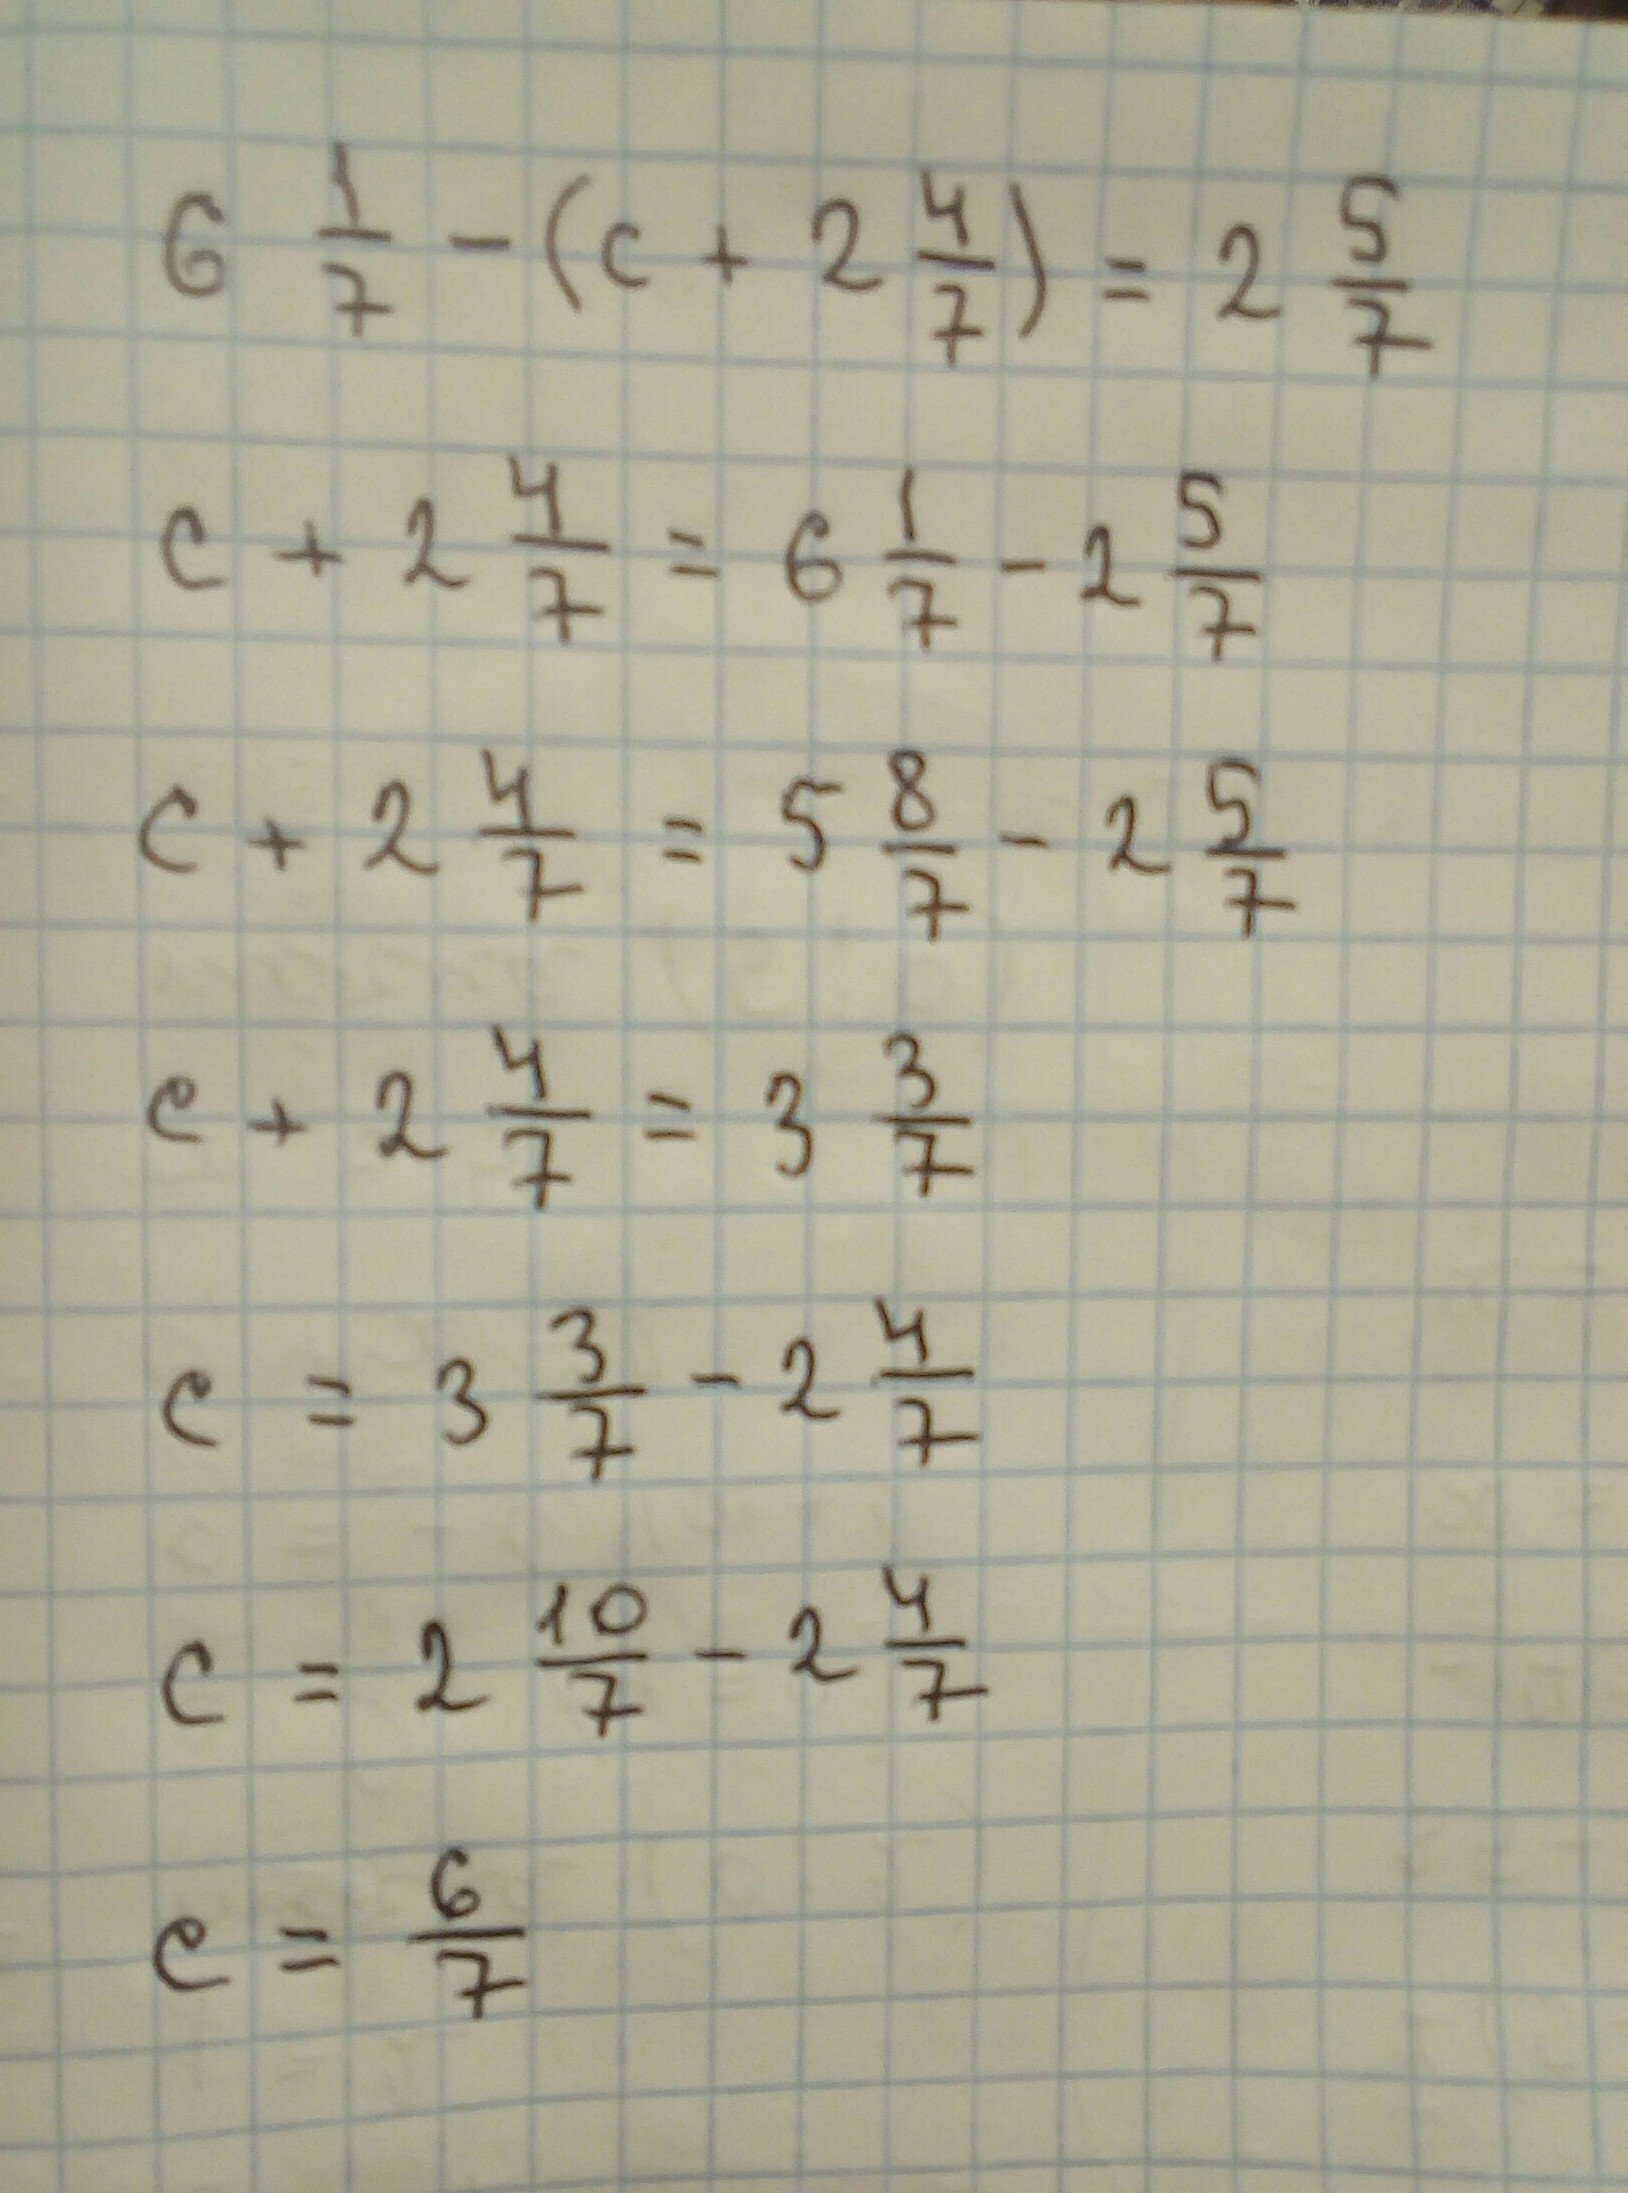 6 1/7 - (c + 2 4/7) = 2 5/7
c + 2 4/7 = 6 1/7 - 2 5/7
c + 2 4/7 = 5 8/7 - 2 5/7
c + 2 4/7 = 3 3/7
c = 3 3/7 - 2 4/7
c = 2 10/7 - 2 4/7
c = 6/7